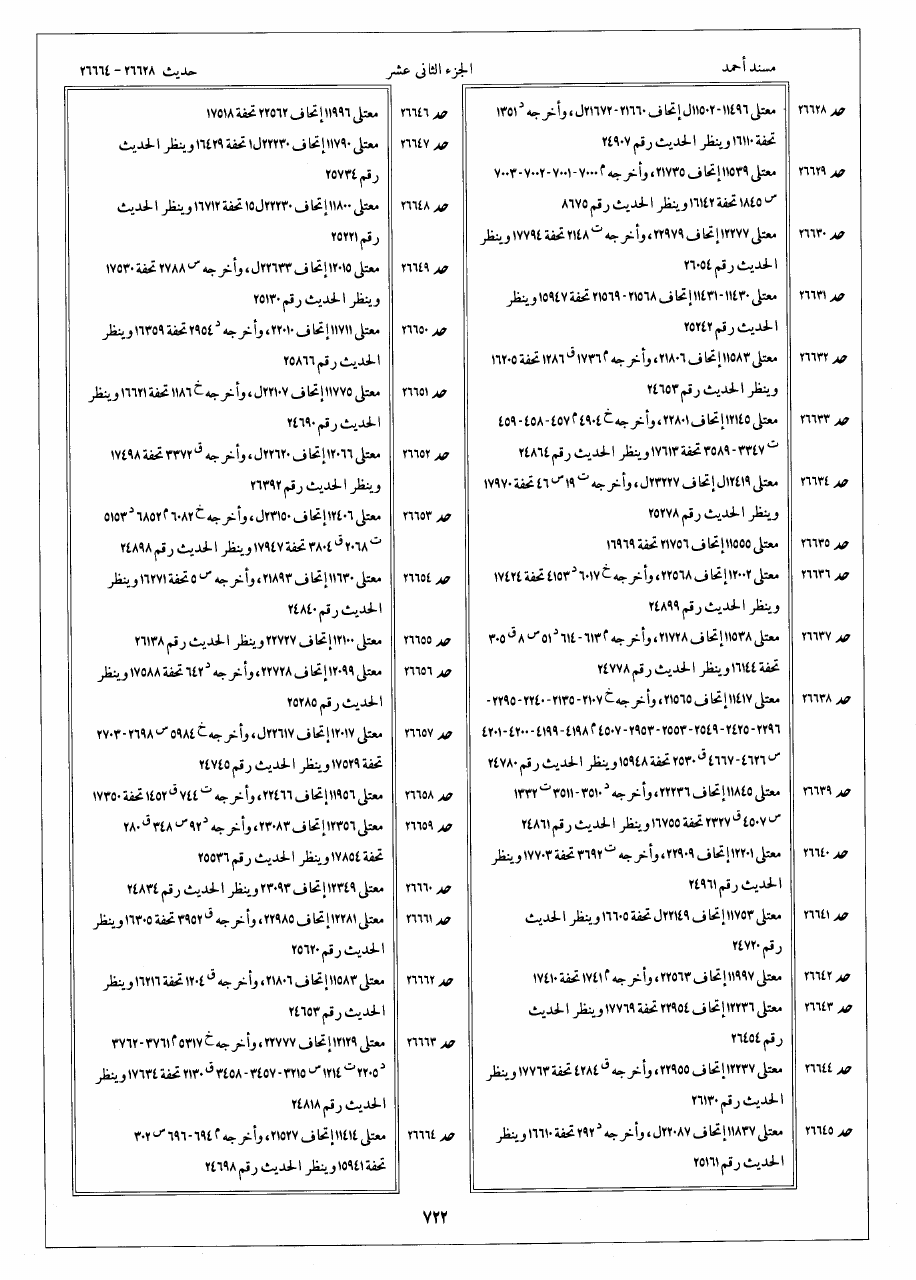 مسند أحمد الجزء الثانى عشر حديث ٢٦٦٢٨ - ٢٦٦٦٤
حد ٢٦٦٢٨ معتلى ١١٤٩٦-١١٥٠٢ل إتحاف ٢١٦٦٠-٢١٦٧٢ل، وأخرجه د ١٣٥١
تحفة ١٦١١٠ وينظر الحديث رقم ٢٤٩٠٧
حد ٢٦٦٢٩ معتلى ١١٥٣٩ إتحاف ٢١٧٣٥، وأخرجه م ٧٠٠٠-٧٠٠١-٧٠٠٢-٧٠٠٣
س ١٨٤٥ تحفة ١٦١٤٢ وينظر الحديث رقم ٨٦٧٥
حد ٢٦٦٣٠ معتلى ١٢٢٧٧ إتحاف ٢٢٩٧٩، وأخرجه ت ٢١٤٨ تحفة ١٧٧٩٤ وينظر
الحديث رقم ٢٦٠٥٤
حد ٢٦٦٣١ معتلى ١١٤٣٠-١١٤٣١ إتحاف ٢١٥٦٨-٢١٥٦٩ تحفة ١٥٩٤٧ وينظر
الحديث رقم ٢٥٢٤٢
حد ٢٦٦٣٢ معتلى ١١٥٨٣ إتحاف ٢١٨٠٦، وأخرجه م ١٧٣٦ ق ١٢٨٦ تحفة ١٦٢٠٥
وينظر الحديث رقم ٢٤٦٥٣
حد ٢٦٦٣٣ معتلى ١٢١٤٥ إتحاف ٢٢٨٠١، وأخرجه خ ٤٩٠٤ م ٤٥٧-٤٥٨-٤٥٩
ت ٣٣٤٧-٣٥٨٩ تحفة ١٧٦١٣ وينظر الحديث رقم ٢٤٨٦٤
حد ٢٦٦٣٤ معتلى ١٢٤١٩ل إتحاف ٢٣٢٢٧ل، وأخرجه ت ١٩ س ٤٦ تحفة ١٧٩٧٠
وينظر الحديث رقم ٢٥٢٧٨
حد ٢٦٦٣٥ معتلى ١١٥٥٥ إتحاف ٢١٧٥٦ تحفة ١٦٩٦٩
حد ٢٦٦٣٦ معتلى ١٢٠٠٢ إتحاف ٢٢٥٦٨، وأخرجه خ ٦٠١٧ د ٤١٥٣ تحفة ١٧٤٢٤
وينظر الحديث رقم ٢٤٨٩٩
حد ٢٦٦٣٧ معتلى ١١٥٣٨ إتحاف ٢١٧٢٨، وأخرجه م ٦١٣-٦١٤ د ٥١ س ٨ ق ٣٠٥
تحفة ١٦١٤٤ وينظر الحديث رقم ٢٤٧٧٨
حد ٢٦٦٣٨ معتلى ١١٤١٧ إتحاف ٢١٥٦٥، وأخرجه خ ٢١٠٧-٢١٣٥-٢٢٤٠-٢٢٩٥-
٢٢٩٦-٢٤٢٥-٢٥٤٩-٢٥٥٣-٢٩٥٣-٤٥٠٧ م ٤١٩٨-٤١٩٩-٤٢٠٠-٤٢٠١
س ٤٦٢٦-٤٦٦٧ ق ٢٥٣٠ تحفة ١٥٩٤٨ وينظر الحديث رقم ٢٤٧٨٠
حد ٢٦٦٣٩ معتلى ١١٨٤٥ إتحاف ٢٢٢٣٦، وأخرجه د ٣٥١٠-٣٥١١ ت ١٣٣٢
س ٤٥٠٧ ق ٢٣٢٧ تحفة ١٦٧٥٥ وينظر الحديث رقم ٢٤٨٦١
حد ٢٦٦٤٠ معتلى ١٢٢٠١ إتحاف ٢٢٩٠٩، وأخرجه ت ٣٦٩٢ تحفة ١٧٧٠٣ وينظر
الحديث رقم ٢٤٩٦١
حد ٢٦٦٤١ معتلى ١١٧٥٣ إتحاف ٢٢١٤٩ل تحفة ١٦٦٠٥ وينظر الحديث
رقم ٢٤٧٢٠
حد ٢٦٦٤٢ معتلى ١١٩٩٧ إتحاف ٢٢٥٦٣، وأخرجه م ١٧٤١ تحفة ١٧٤١٠
حد ٢٦٦٤٣ معتلى ١٢٢٣٦ إتحاف ٢٢٩٥٤ تحفة ١٧٧٦٩ وينظر الحديث
رقم ٢٦٤٥٤
حد ٢٦٦٤٤ معتلى ١٢٢٣٧ إتحاف ٢٢٩٥٥، وأخرجه ق ٤٢٨٤ تحفة ١٧٧٦٣ وينظر
الحديث رقم ٢٦١٣٠
حد ٢٦٦٤٥ معتلى ١١٨٣٧ إتحاف ٢٢٠٨٧ل، وأخرجه د ٢٩٢ تحفة ١٦٦١٠ وينظر
الحديث رقم ٢٥١٦١
حد ٢٦٦٤٦ معتلى ١١٩٩٦ إتحاف ٢٢٥٦٢ تحفة ١٧٥١٨
حد ٢٦٦٤٧ معتلى ١١٧٩٠ إتحاف ٢٢٢٣٠ل١ تحفة ١٦٤٢٩ وينظر الحديث
رقم ٢٥٧٣٤
حد ٢٦٦٤٨ معتلى ١١٨٠٠ إتحاف ٢٢٢٣٠ل١٥ تحفة ١٦٧١٢ وينظر الحديث
رقم ٢٥٢٢١
حد ٢٦٦٤٩ معتلى ١٢٠١٥ إتحاف ٢٢٦٣٣ل، وأخرجه س ٢٧٨٨ تحفة ١٧٥٣٠
وينظر الحديث رقم ٢٥١٣٠
حد ٢٦٦٥٠ معتلى ١١٧١١ إتحاف ٢٢٠١٠، وأخرجه د ٢٩٥٤ تحفة ١٦٣٥٩ وينظر
الحديث رقم ٢٥٨٦٦
حد ٢٦٦٥١ معتلى ١١٧٧٥ إتحاف ٢٢١٠٧ل، وأخرجه خ ١١٨٦ تحفة ١٦٦٢١ وينظر
الحديث رقم ٢٤٦٩٠
حد ٢٦٦٥٢ معتلى ١٢٠٦٦ إتحاف ٢٢٦٢٠ل، وأخرجه ق ٣٣٧٢ تحفة ١٧٤٩٨
وينظر الحديث رقم ٢٦٣٩٢
حد ٢٦٦٥٣ معتلى ١٢٤٠٦ إتحاف ٢٣١٥٠ل، وأخرجه خ ٦٠٨٢ م ٦٨٥٢ د ٥١٥٣
ت ٢٠٦٨ ق ٣٨٠٤ تحفة ١٧٩٤٧ وينظر الحديث رقم ٢٤٨٩٨
حد ٢٦٦٥٤ معتلى ١١٦٣٠ إتحاف ٢١٨٩٣، وأخرجه س ٥ تحفة ١٦٢٧١ وينظر
الحديث رقم ٢٤٨٤٠
حد ٢٦٦٥٥ معتلى ١٢١٠٠ إتحاف ٢٢٧٢٧ وينظر الحديث رقم ٢٦١٣٨
حد ٢٦٦٥٦ معتلى ١٢٠٩٩ إتحاف ٢٢٧٢٨، وأخرجه د ٦٤٢ تحفة ١٧٥٨٨ وينظر
الحديث رقم ٢٥٢٨٥
حد ٢٦٦٥٧ معتلى ١٢٠١٧ إتحاف ٢٢٦١٧ل، وأخرجه خ ٥٩٨٤ س ٢٦٩٨-٢٧٠٣
تحفة ١٧٥٢٩ وينظر الحديث رقم ٢٤٧٤٥
حد ٢٦٦٥٨ معتلى ١١٩٥٦ إتحاف ٢٢٤٦٦، وأخرجه ت ٧٤٤ ق ١٤٥٢ تحفة ١٧٣٥٠
حد ٢٦٦٥٩ معتلى ١٢٣٥٦ إتحاف ٢٣٠٨٣، وأخرجه د ٩٢ س ٣٤٨ ق ٢٨٠
تحفة ١٧٨٥٤ وينظر الحديث رقم ٢٥٥٣٦
حد ٢٦٦٦٠ معتلى ١٢٣٤٩ إتحاف ٢٣٠٩٣ وينظر الحديث رقم ٢٤٨٣٤
حد ٢٦٦٦١ معتلى ١٢٢٨١ إتحاف ٢٢٩٨٥، وأخرجه ق ٣٩٥٢ تحفة ١٦٣٠٥ وينظر
الحديث رقم ٢٥٦٢٠
حد ٢٦٦٦٢ معتلى ١١٥٨٣ إتحاف ٢١٨٠٦، وأخرجه ق ١٢٠٤ تحفة ١٦٢١٦ وينظر
الحديث رقم ٢٤٦٥٣
حد ٢٦٦٦٣ معتلى ١٢١٢٩ إتحاف ٢٢٧٧٧، وأخرجه خ ٥٣١٧ م ٣٧٦١-٣٧٦٢
د ٢٢٠٥ ت ١٢١٤ س ٣٢١٥-٣٤٥٧-٣٤٥٨ ق ٢١٣٠ تحفة ١٧٦٣٤ وينظر
الحديث رقم ٢٤٨١٨
حد ٢٦٦٦٤ معتلى ١١٤١٤ إتحاف ٢١٥٢٧، وأخرجه م ٦٩٤-٦٩٦ س ٣٠٢
تحفة ١٥٩٤١ وينظر الحديث رقم ٢٤٦٩٨
٧٢٢